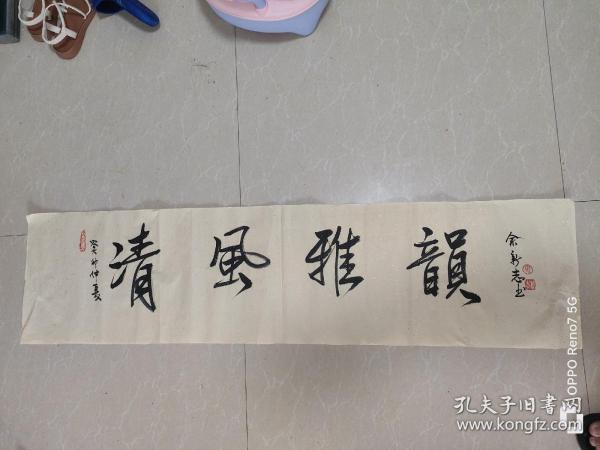 清風雅韻
癸卯仲夏
俞新志书
OPPO Reno7 5G
孔夫子旧书网
www.kongfz.com